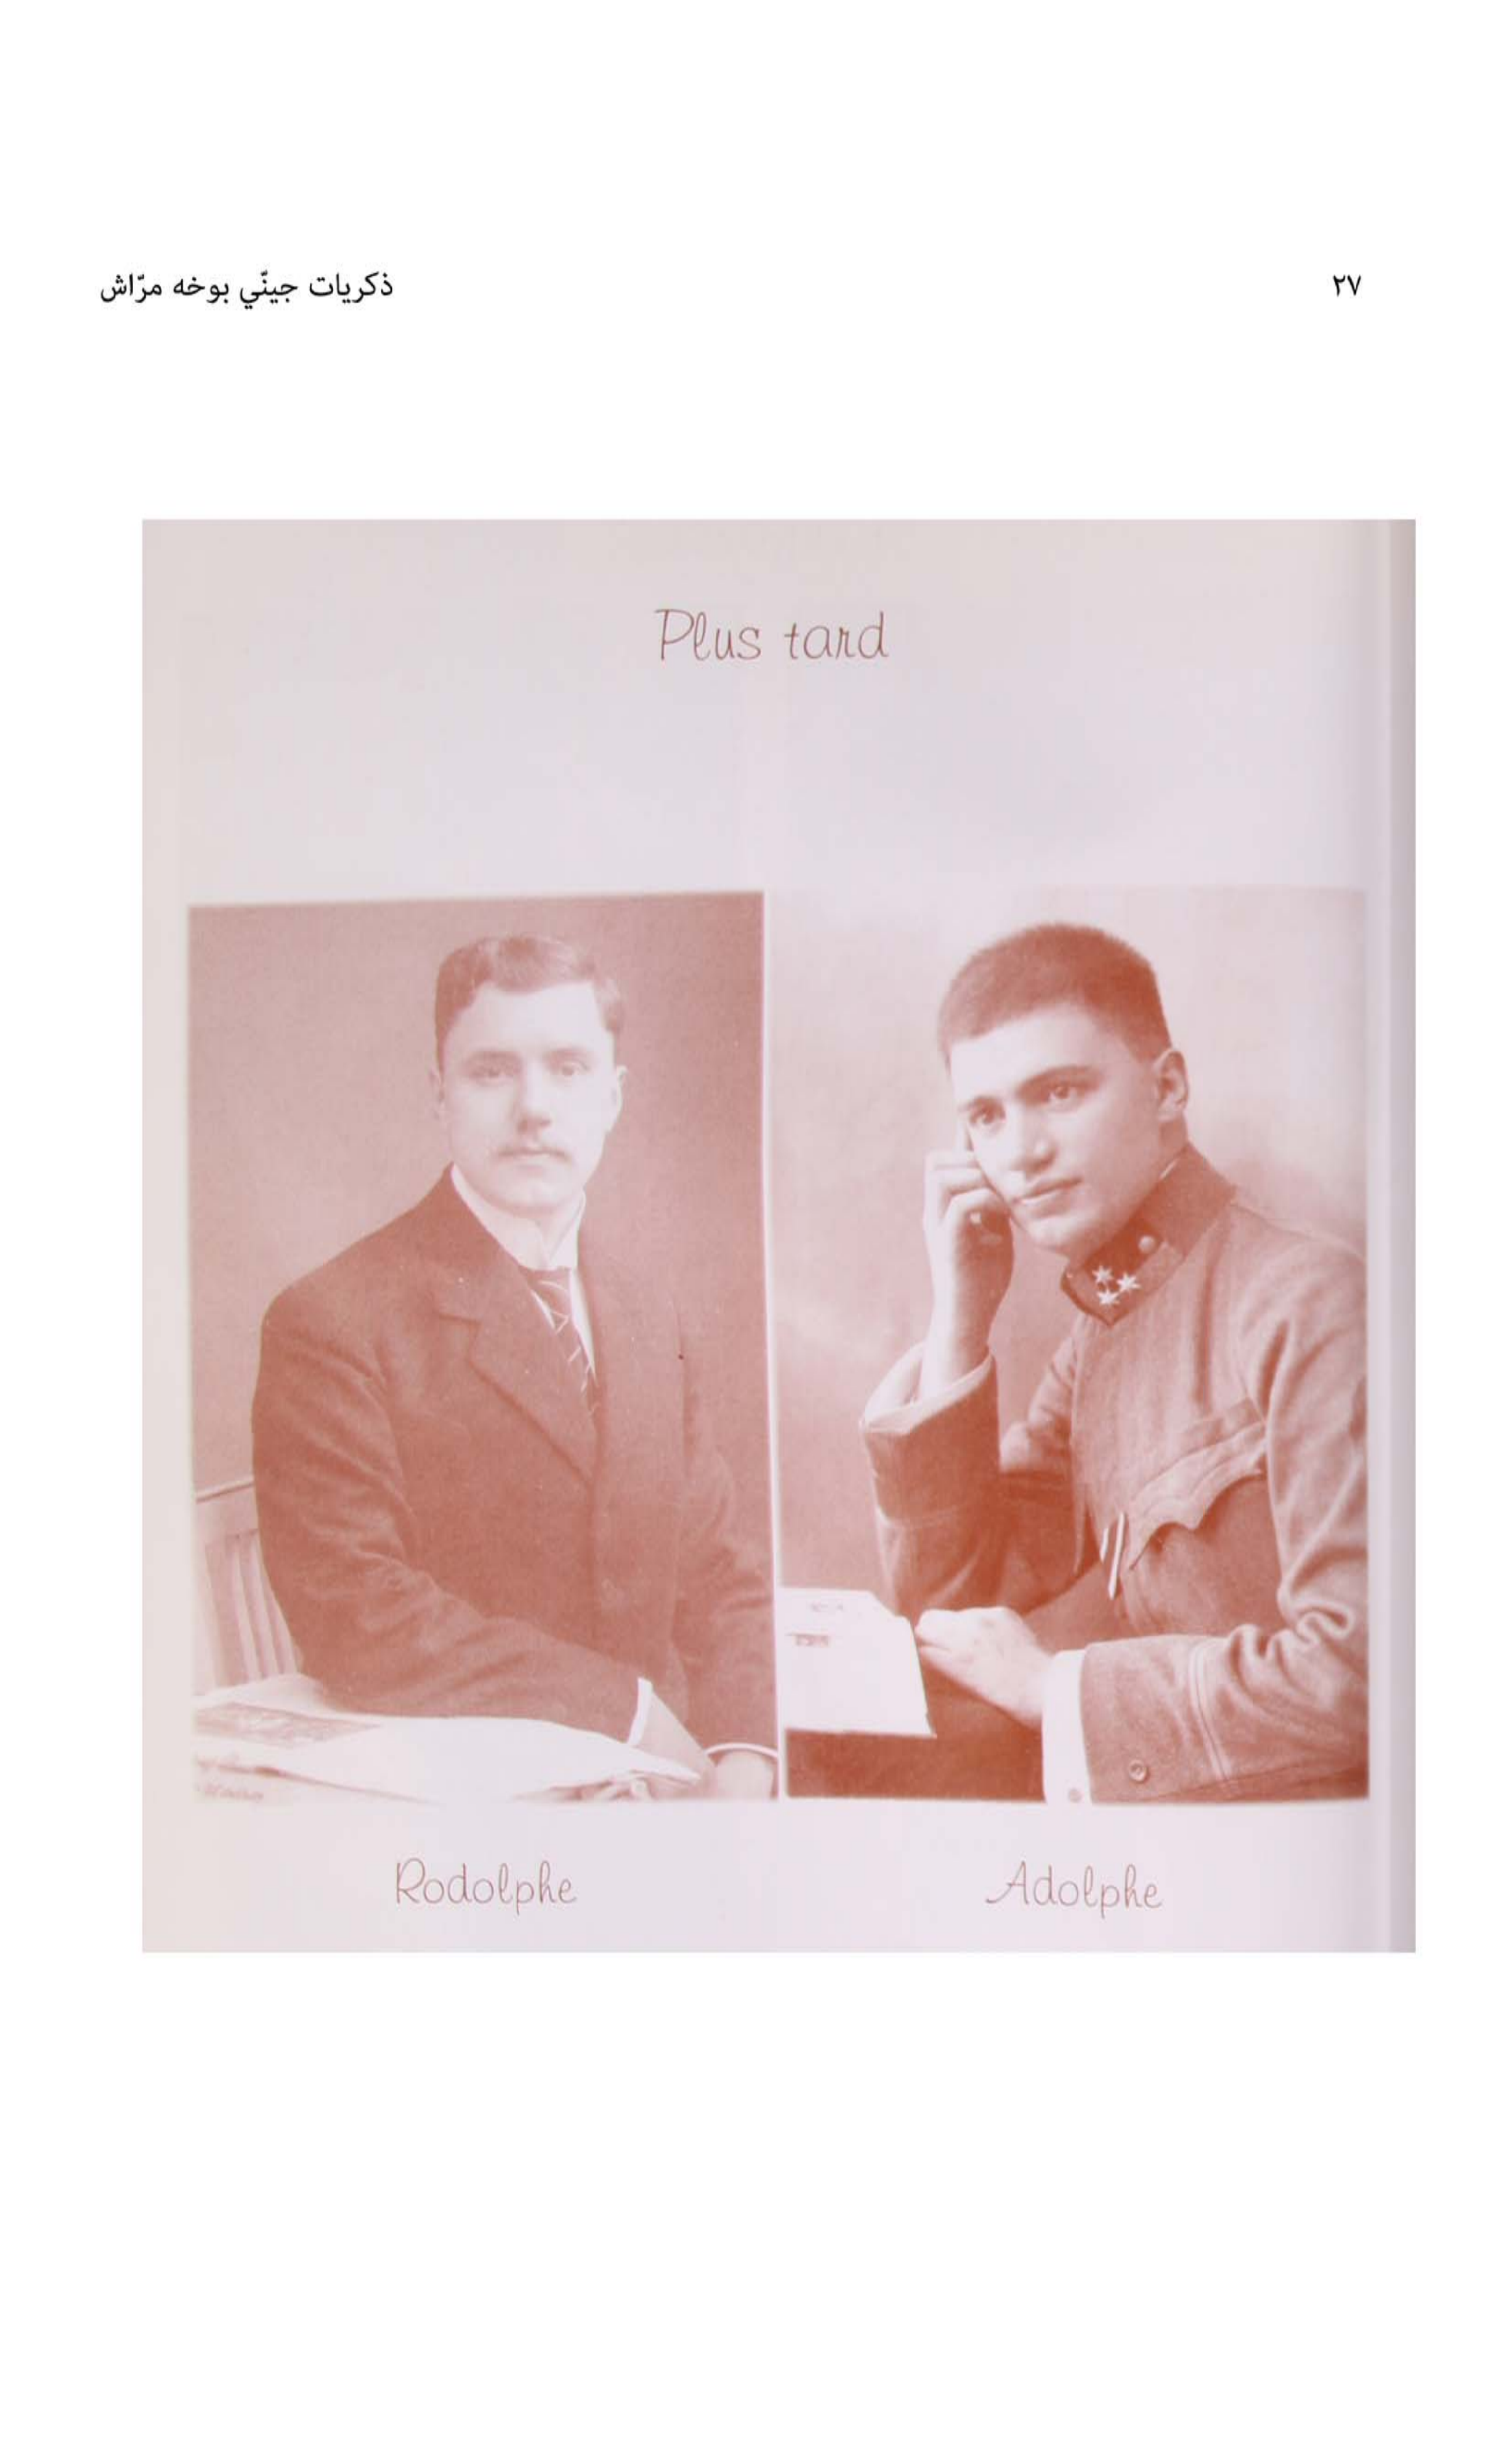 ذكريات جينّي بوخه مرّاش
٢٧
Plus tard
Rodolphe
Adolphe